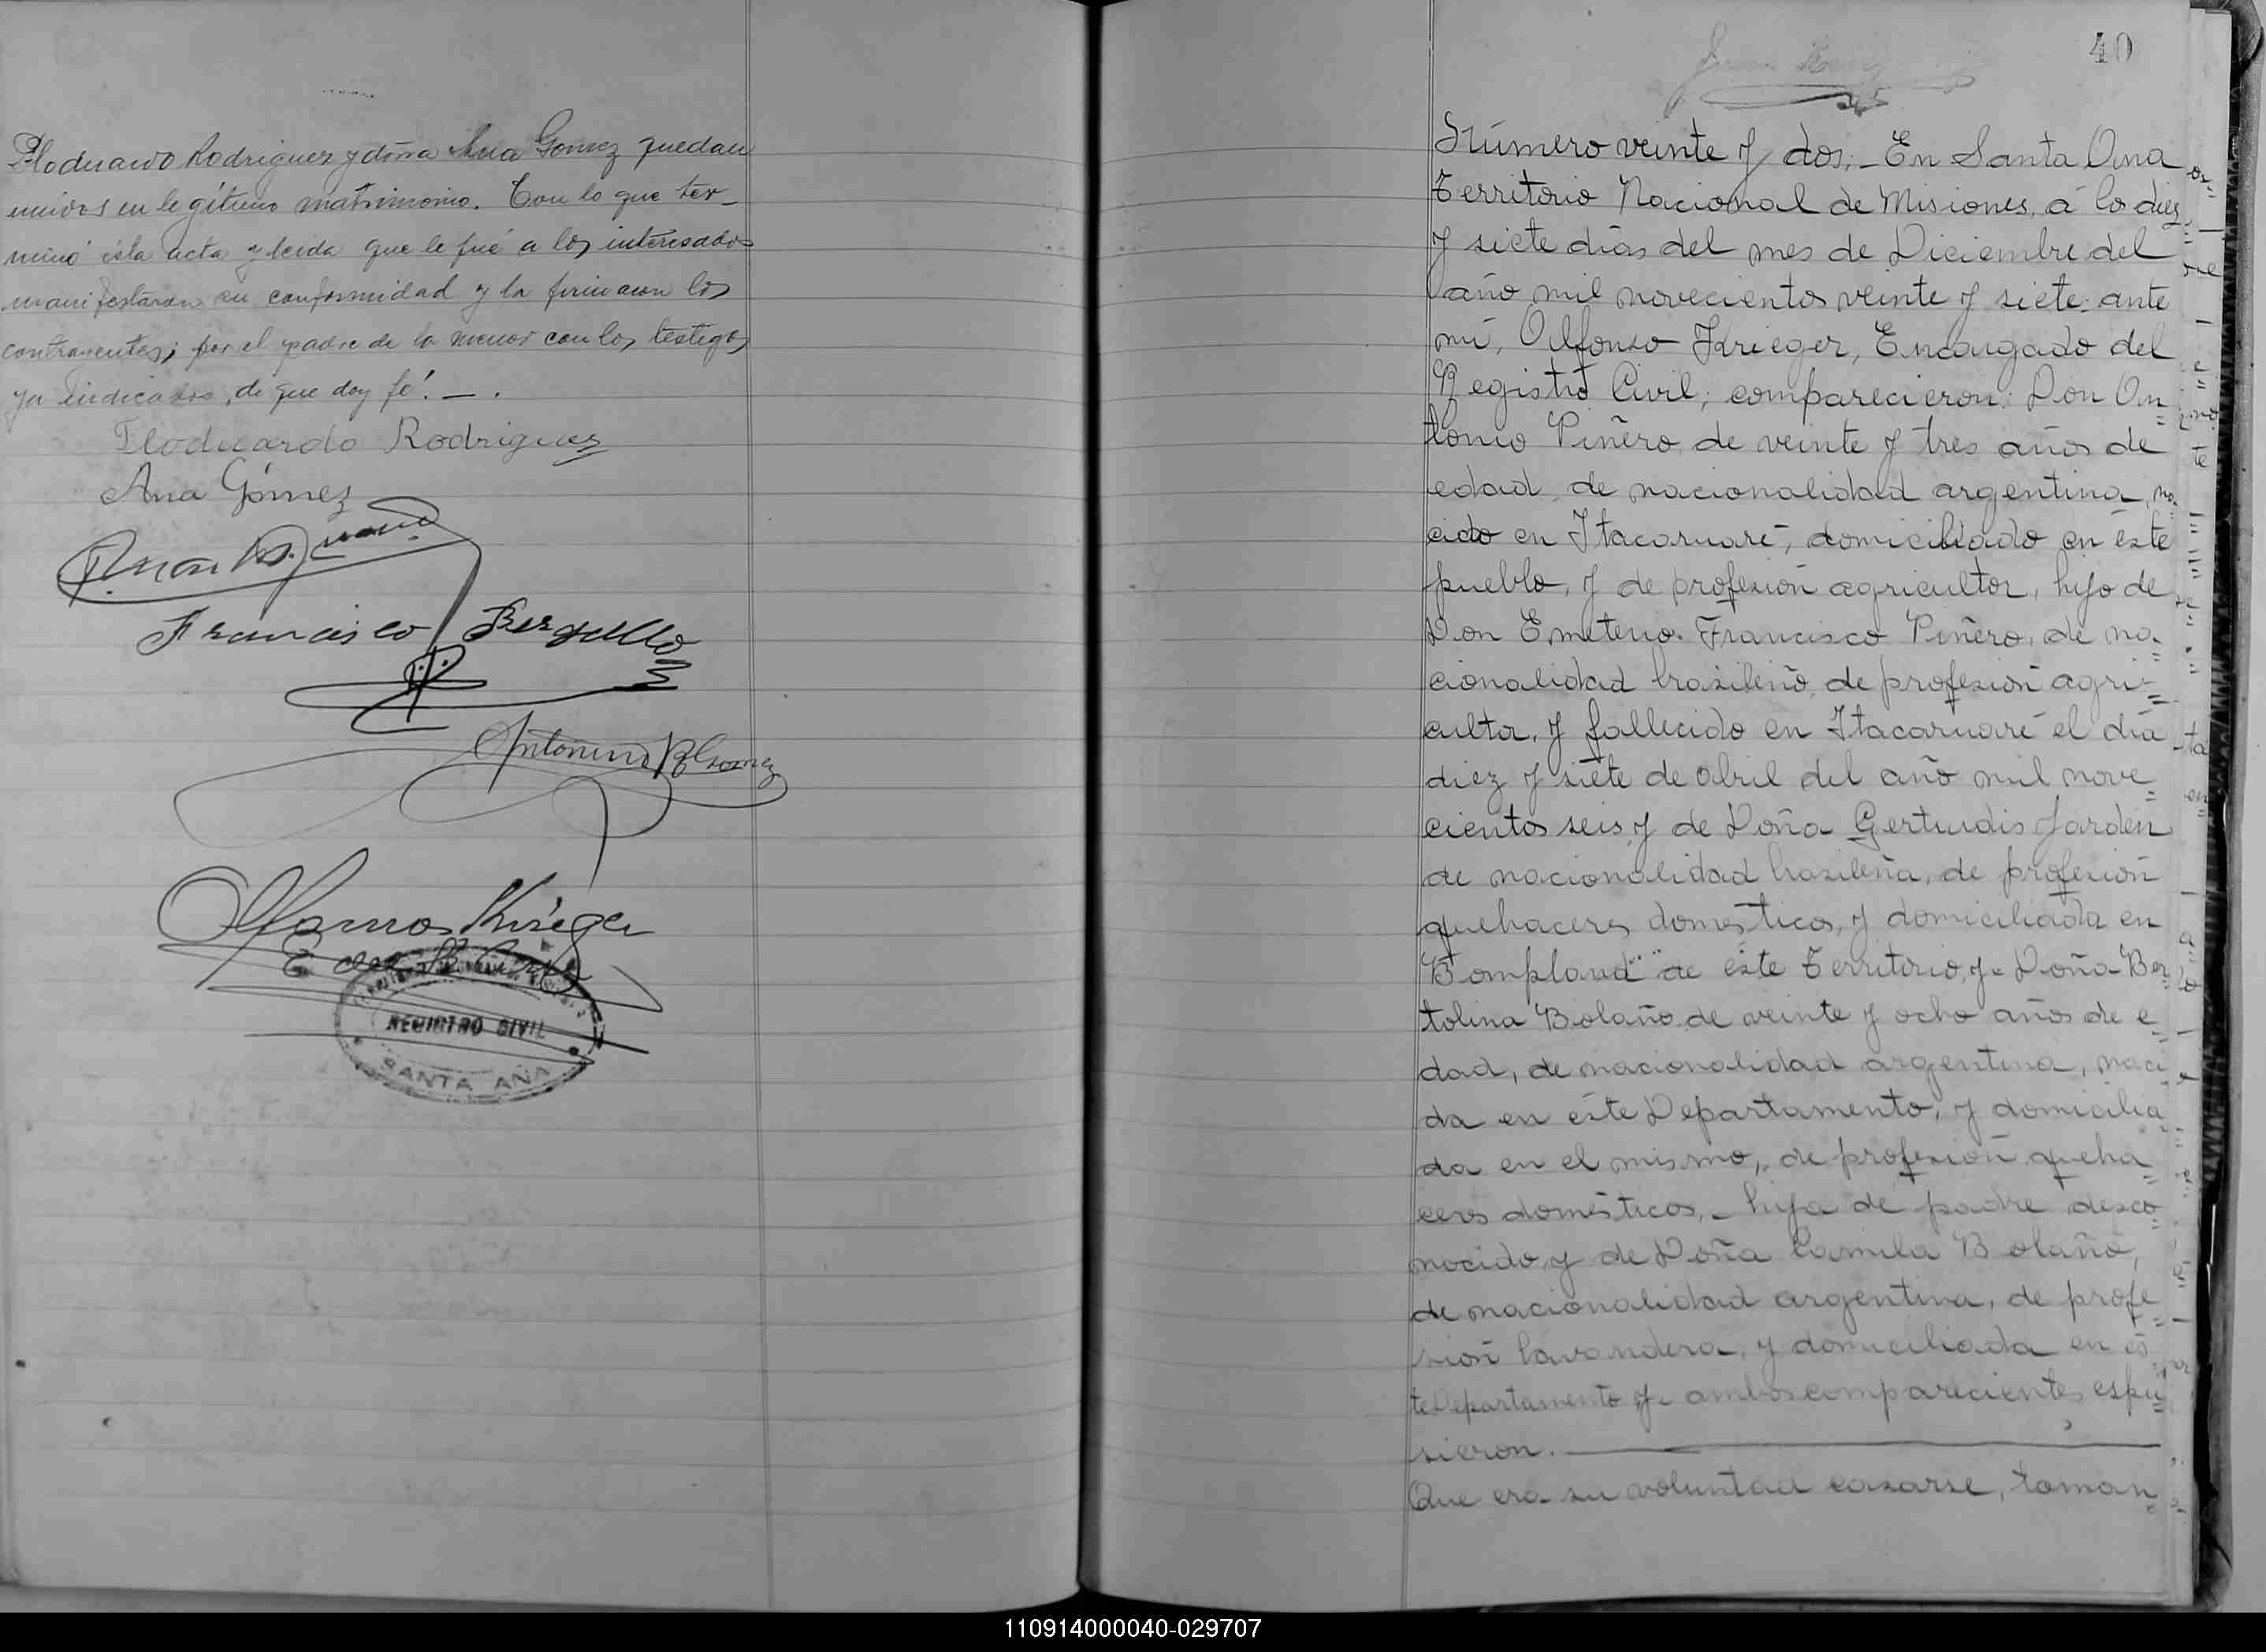 Floduardo Rodriguez y doña Ana Gomez quedan
unidos en legítimo matrimonio. Con lo que ter-
minó ésta acta y leida que le fué a los interesados
manifestaron su conformidad y la firmaron los
contrayentes; por el padre de la menor con los testigos
ya indicados, de que doy fé!. — .
Floduardo Rodriguez
Ana Gómez
Francisco Bergallo
Antonino
Alfonso Krieger
REGISTRO CIVIL
SANTA ANA
40
Número veinte y dos;- En Santa Ana
Territorio Nacional de Misiones, á lo diez
y siete dias del mes de Diciembre del
año mil novecientos veinte y siete: ante
mi, Alfonso Krieger, Encargado del
Registro Civil; comparecieron: Don An=
tonio Piñero de veinte y tres años de
edad, de nacionalidad argentina, na=
cido en Itacaruaré, domiciliado en éste
pueblo, y de profesión agricultor, hijo de
Don Emeterio Francisco Piñero, de na=
cionalidad brasileño, de profesión agri=
cultor, y fallecido en Itacaruaré el dia
diez y siete de abril del año mil nove=
cientos seis, y de Doña Gertrudis Jardén
de nacionalidad brasileña, de profesión
quehaceres domésticos, y domiciliada en
Bompland de éste Territorio, y Doña Ber=
tolina Bolaño de veinte y ocho años de e=
dad, de nacionalidad argentina, naci=
da en éste Departamento, y domicilia=
da en el mismo, de profesión queha=
ceres domésticos, - hija de padre desco=
nocido, y de Doña Camila Bolaño,
de nacionalidad argentina, de profe=
sión lavandera, y domiciliada en és=
te Departamento y ambos comparecientes espu=
sieron.
Que era su voluntad casarse, toman=
110914000040-029707